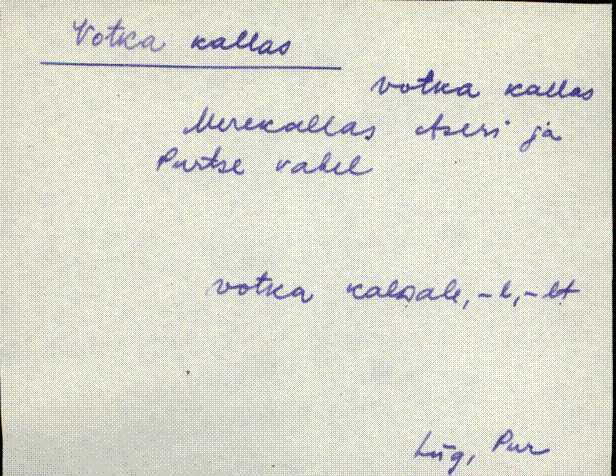 Votka kallas
votka kallas
Merekallas Aseri ja
Purtse vahel
votka kaldale, -l, -lt
Lüg, Pur